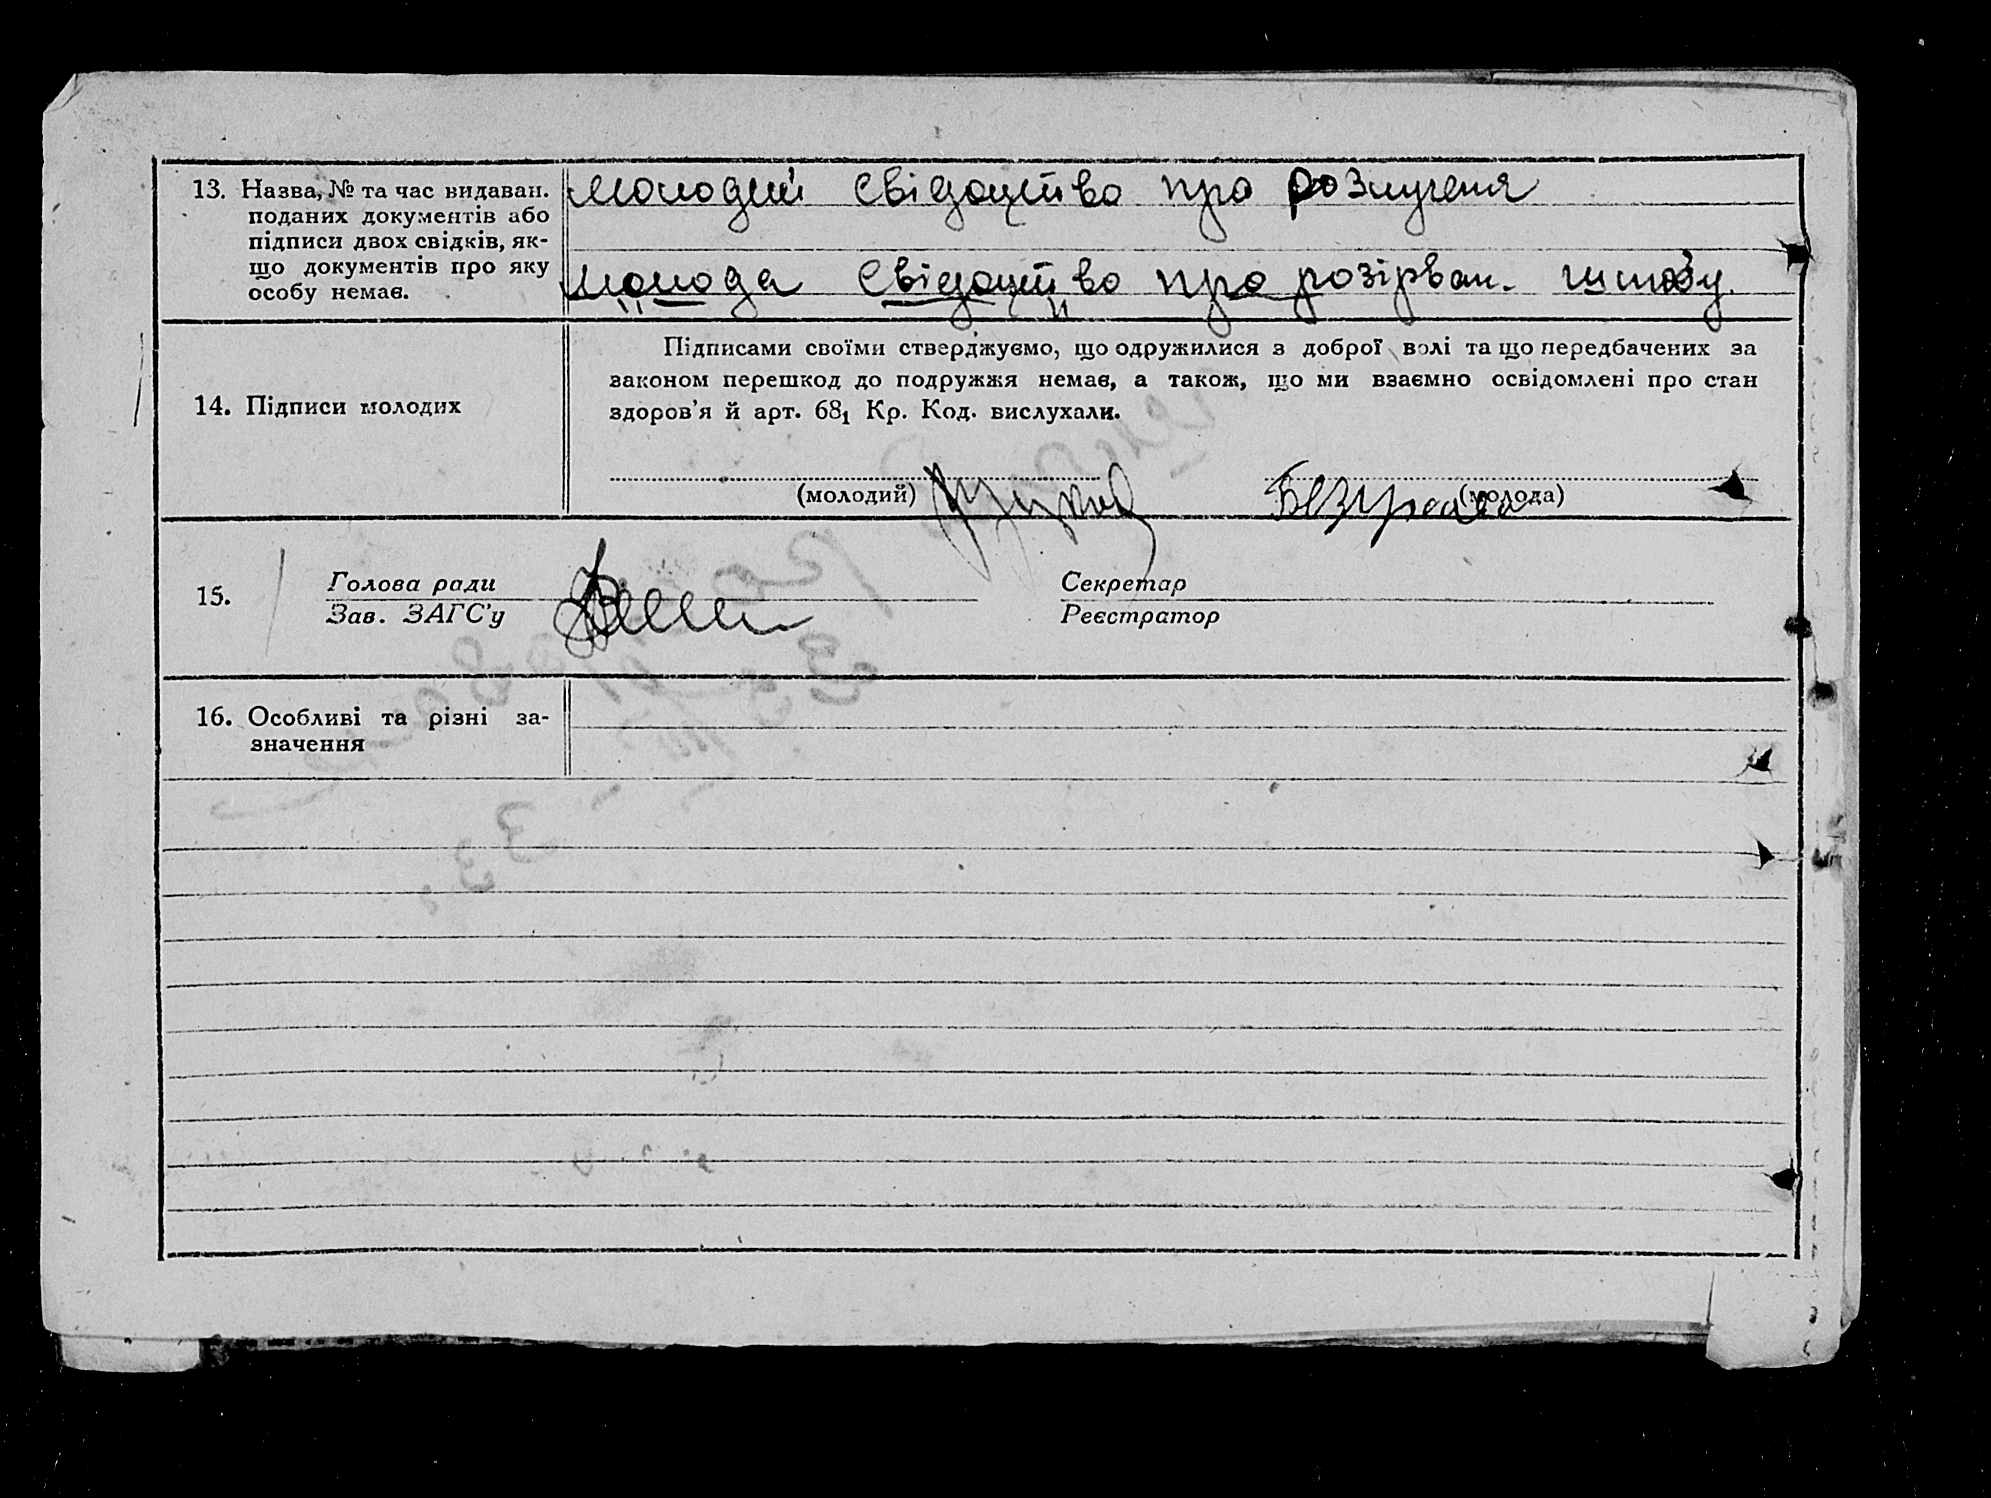 13. Назва, № та час видаван.
поданих документів або
підписи двох свідків, як-
що документів про яку
особу немає.
молодий свідоцтво про розлученя
молода свідоцтво про розірван. шлюбу.
14. Підписи молодих
Підписами своїми стверджуємо, що одружилися з доброї волі та що передбачених за
законом перешкод до подружжя немає, а також, що ми взаємно освідомлені про стан
здоров’я й арт. 68₁ Кр. Код. вислухали.
(молодий) (молода)
15. Голова ради
Зав. ЗАГС’у
Секретар
Реєстратор
16. Особливі та різні за-
значення